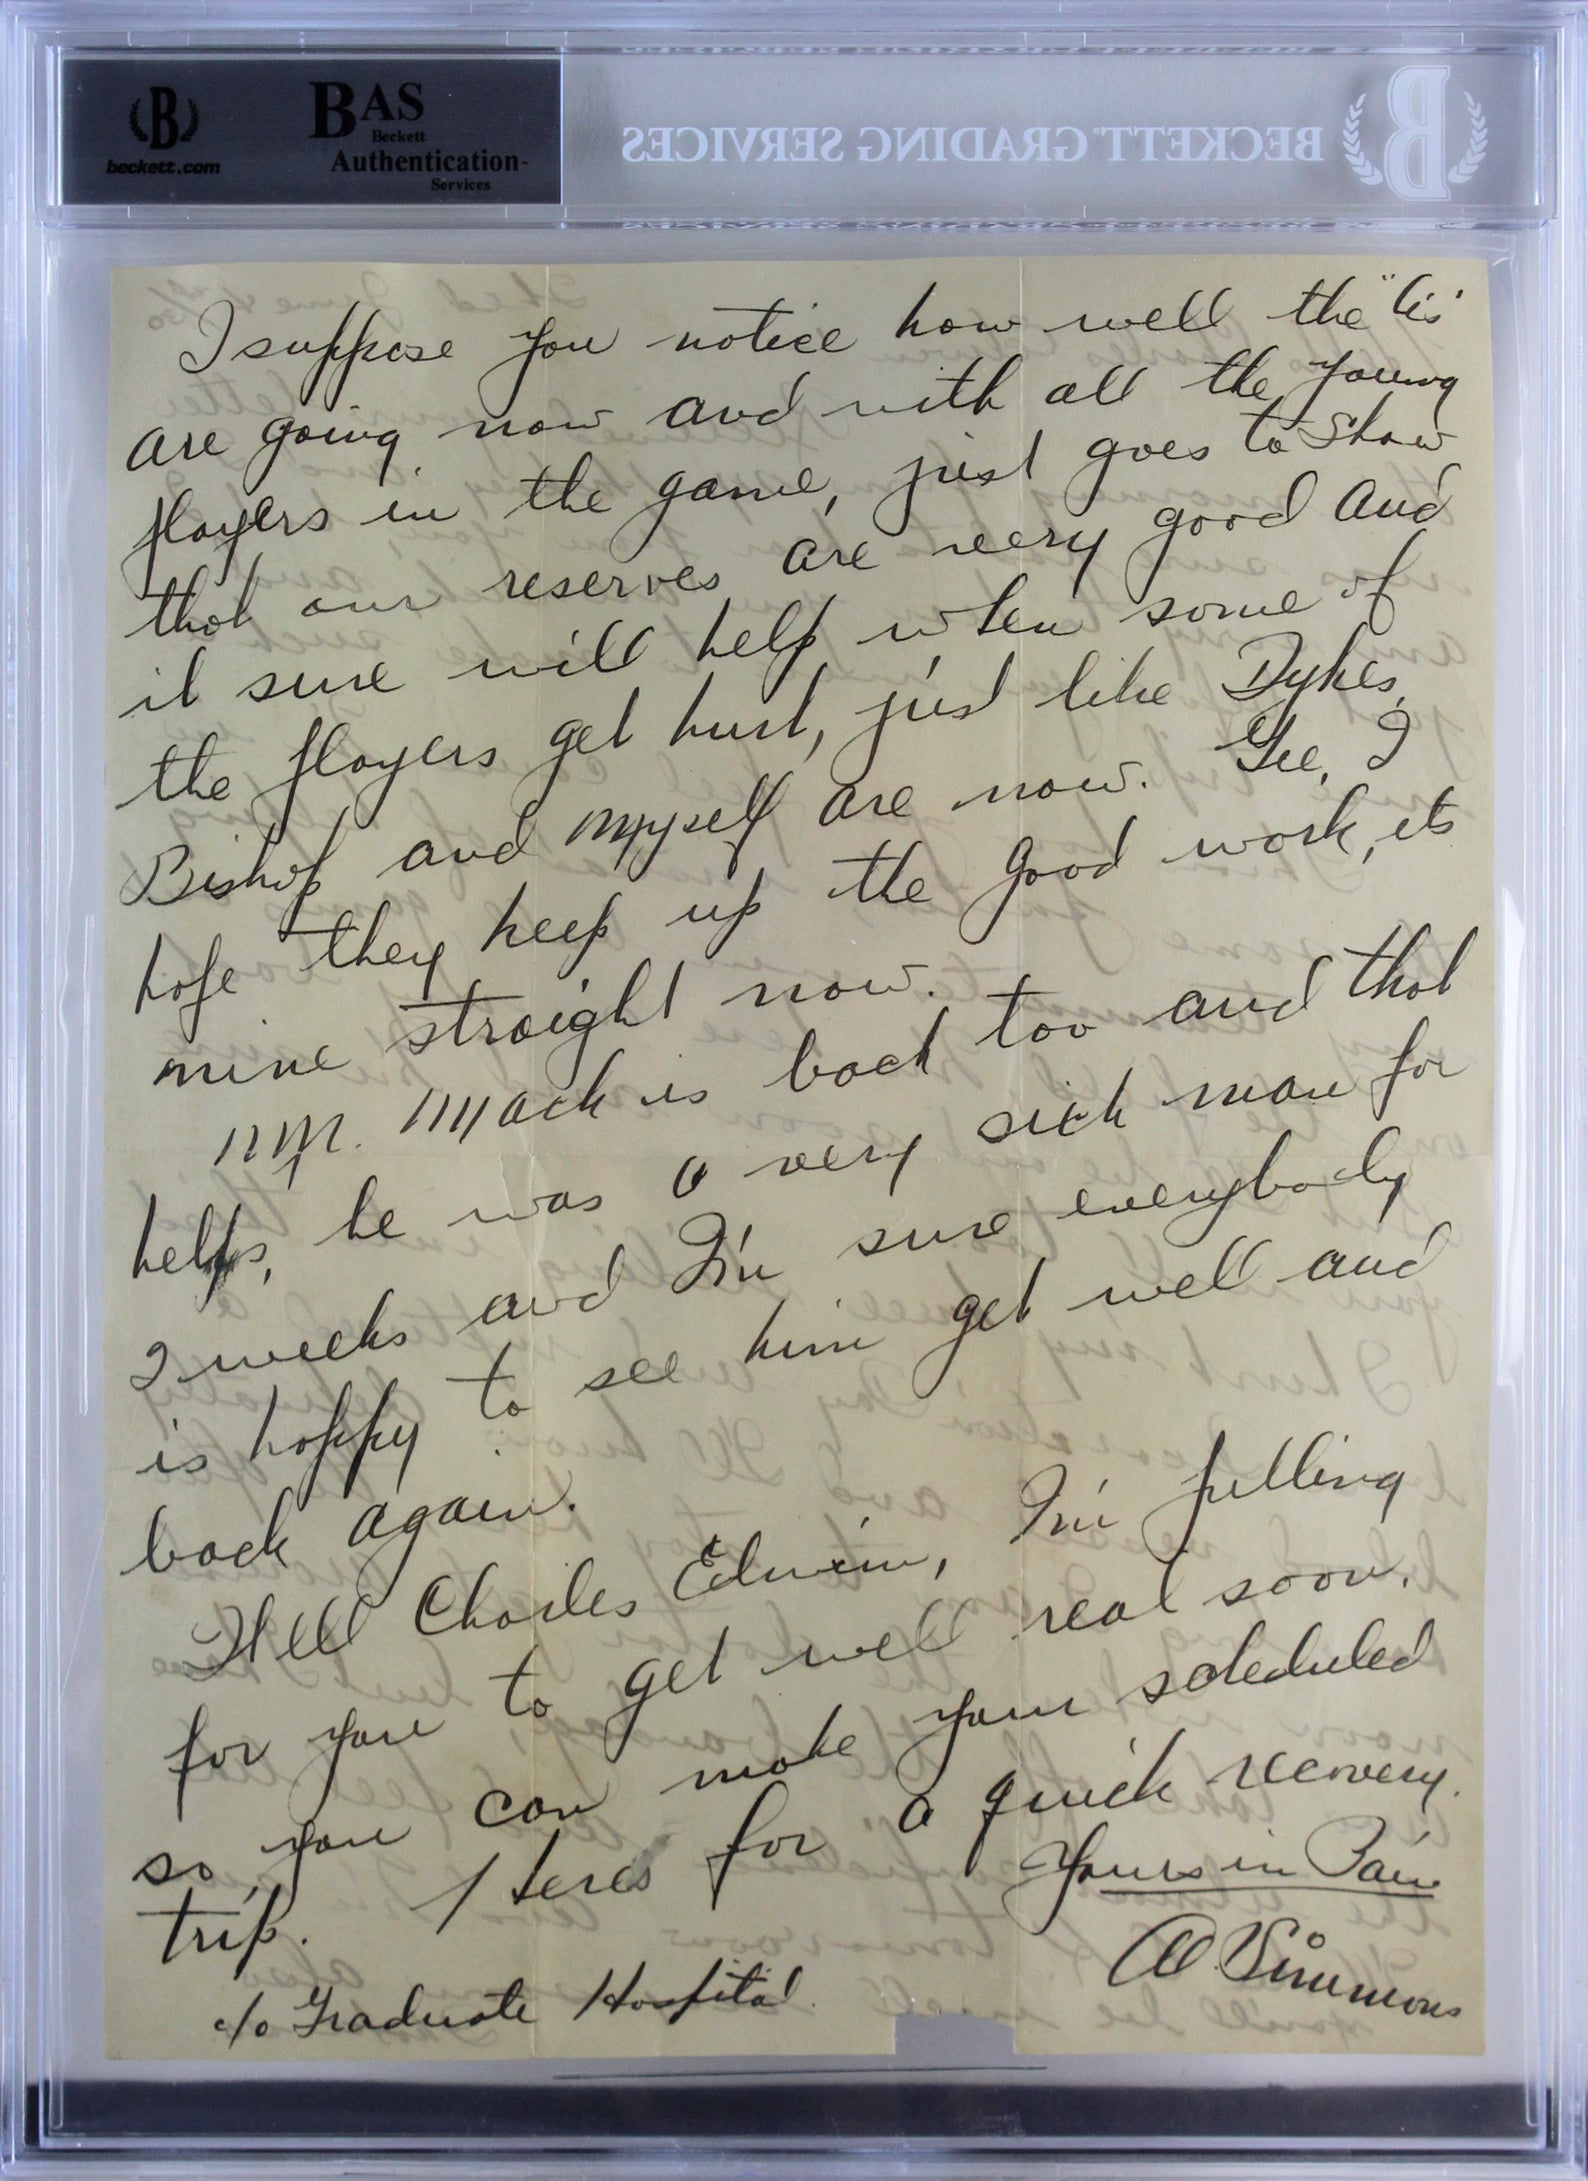 B
beckett.com
BAS
Beckett
Authentication
Services
BECKETT GRADING SERVICES
B
I suppose you notice how well the "A's"
are going now and with all the young
players in the game, just goes to show
that our reserves are very good and
it sure will help when some of
the players get hurt, just like Dykes,
Bishop and myself are now. Gee, I
hope they keep up the good work, its
nine straight now.
Mr. Mack is back too and that
helps, he was a very sick man for
2 weeks and I'm sure everybody
is happy to see him get well and
back again.
Well Charles Edwin, I'm pulling
for you to get well real soon,
so you can make your scheduled
trip. Heres for a quick recovery.
Yours in Pain
Al Simmons
c/o Graduate Hospital.